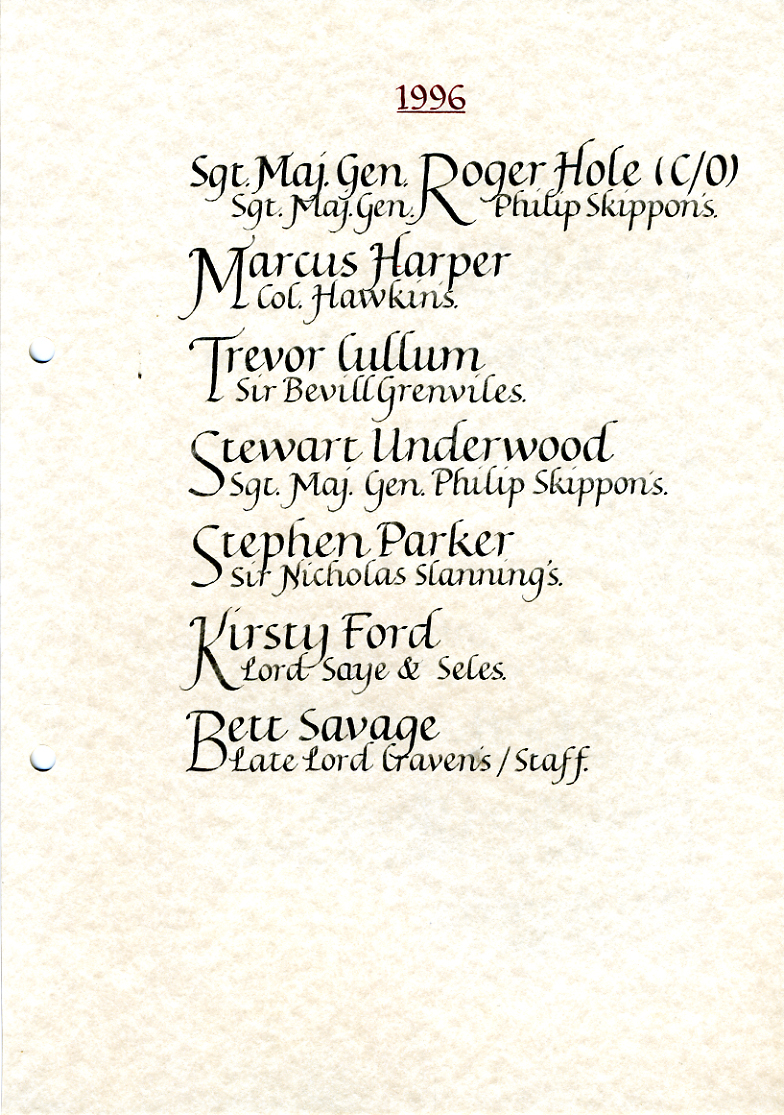 1996
Sgt. Maj. Gen. Roger Hole (C/O)
Sgt. Maj. Gen. Philip Skippon's.
Marcus Harper
Col. Hawkin's.
Trevor Cullum
Sir Bevill Grenviles.
Stewart Underwood
Sgt. Maj. Gen. Philip Skippon's.
Stephen Parker
Sir Nicholas Slanning's.
Kirsty Ford
Lord Saye & Seles.
Bett Savage
Late Lord Craven's / Staff.